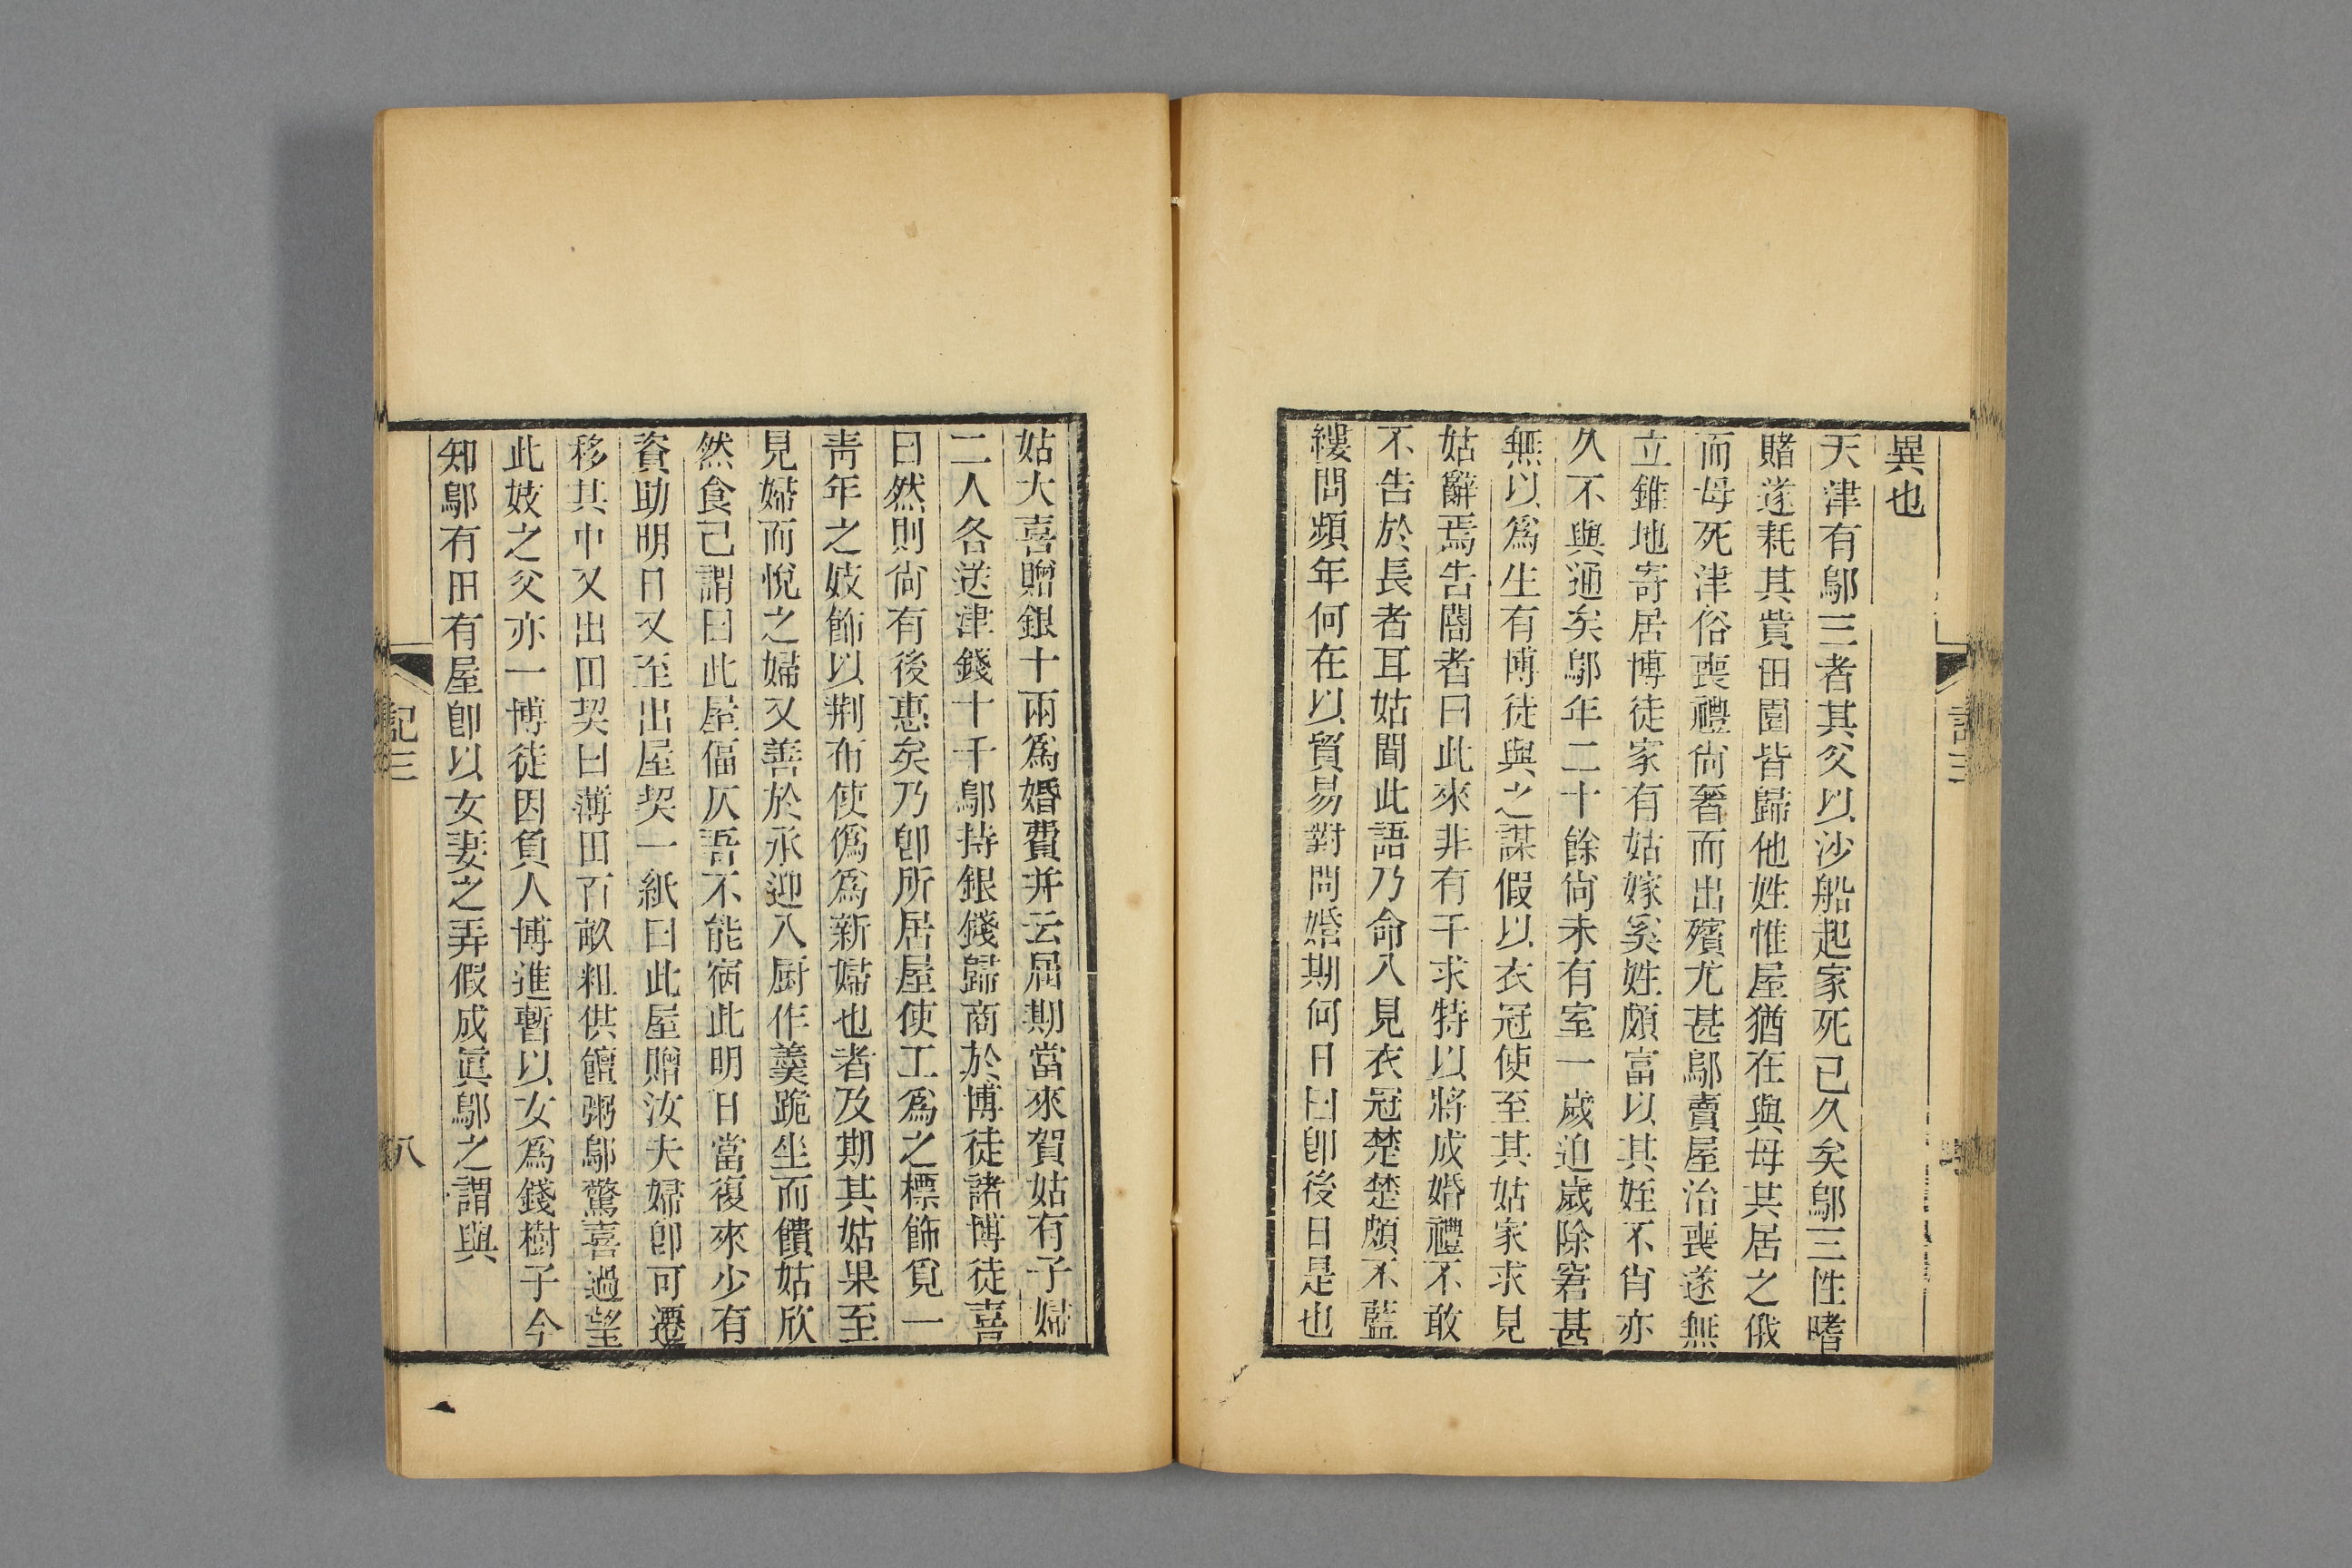 異也
天津有鄔三者其父以沙船起家死已久矣鄔三性嗜
賭遂耗其貲田園皆歸他姓惟屋猶在與母其居之俄
而母死津俗喪禮尙奢而出殯尤甚鄔賣屋治喪遂無
立錐地寄居博徒家有姑嫁奚姓頗富以其姪不肖亦
久不與通矣鄔年二十餘尙未有室一歲迫歲除窘甚
無以爲生有博徒與之謀假以衣冠使至其姑家求見
姑辭焉告閽者曰此來非有干求特以將成婚禮不敢
不告於長者耳姑聞此語乃命入見衣冠楚楚頗不藍
縷問頻年何在以貿易對問婚期何日曰卽後日是也
姑大喜贈銀十兩爲婚費并云屆期當來賀姑有子婦
二人各送津錢十千鄔持銀錢歸商於博徒諸博徒喜
曰然則尙有後惠矣乃卽所居屋使工爲之標飾覓一
靑年之妓飾以荆布使僞爲新婦也者及期其姑果至
見婦而悅之婦又善於承迎入厨作羹跪坐而饋姑欣
然食已謂曰此屋偪仄吾不能宿此明日當復來少有
資助明日又至出屋契一紙曰此屋贈汝夫婦卽可遷
移其中又出田契曰薄田百畝粗供饘粥鄔驚喜過望
此妓之父亦一博徒因負人博進暫以女爲錢樹子今
知鄔有田有屋卽以女妻之弄假成眞鄔之謂與
記三
八